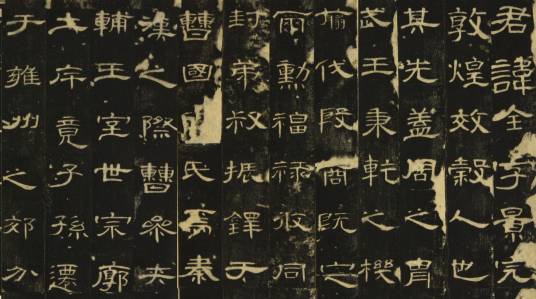 君諱全字景完
敦煌效穀人也
其先蓋周之胄
武王秉乾之機
翦伐殷商既定
爾勳福祿攸同
封弟叔振鐸于
曹國氏焉秦
漢之際曹參夾
輔王室世宗廓
土斥竟子孫遷
于雍州之郊分